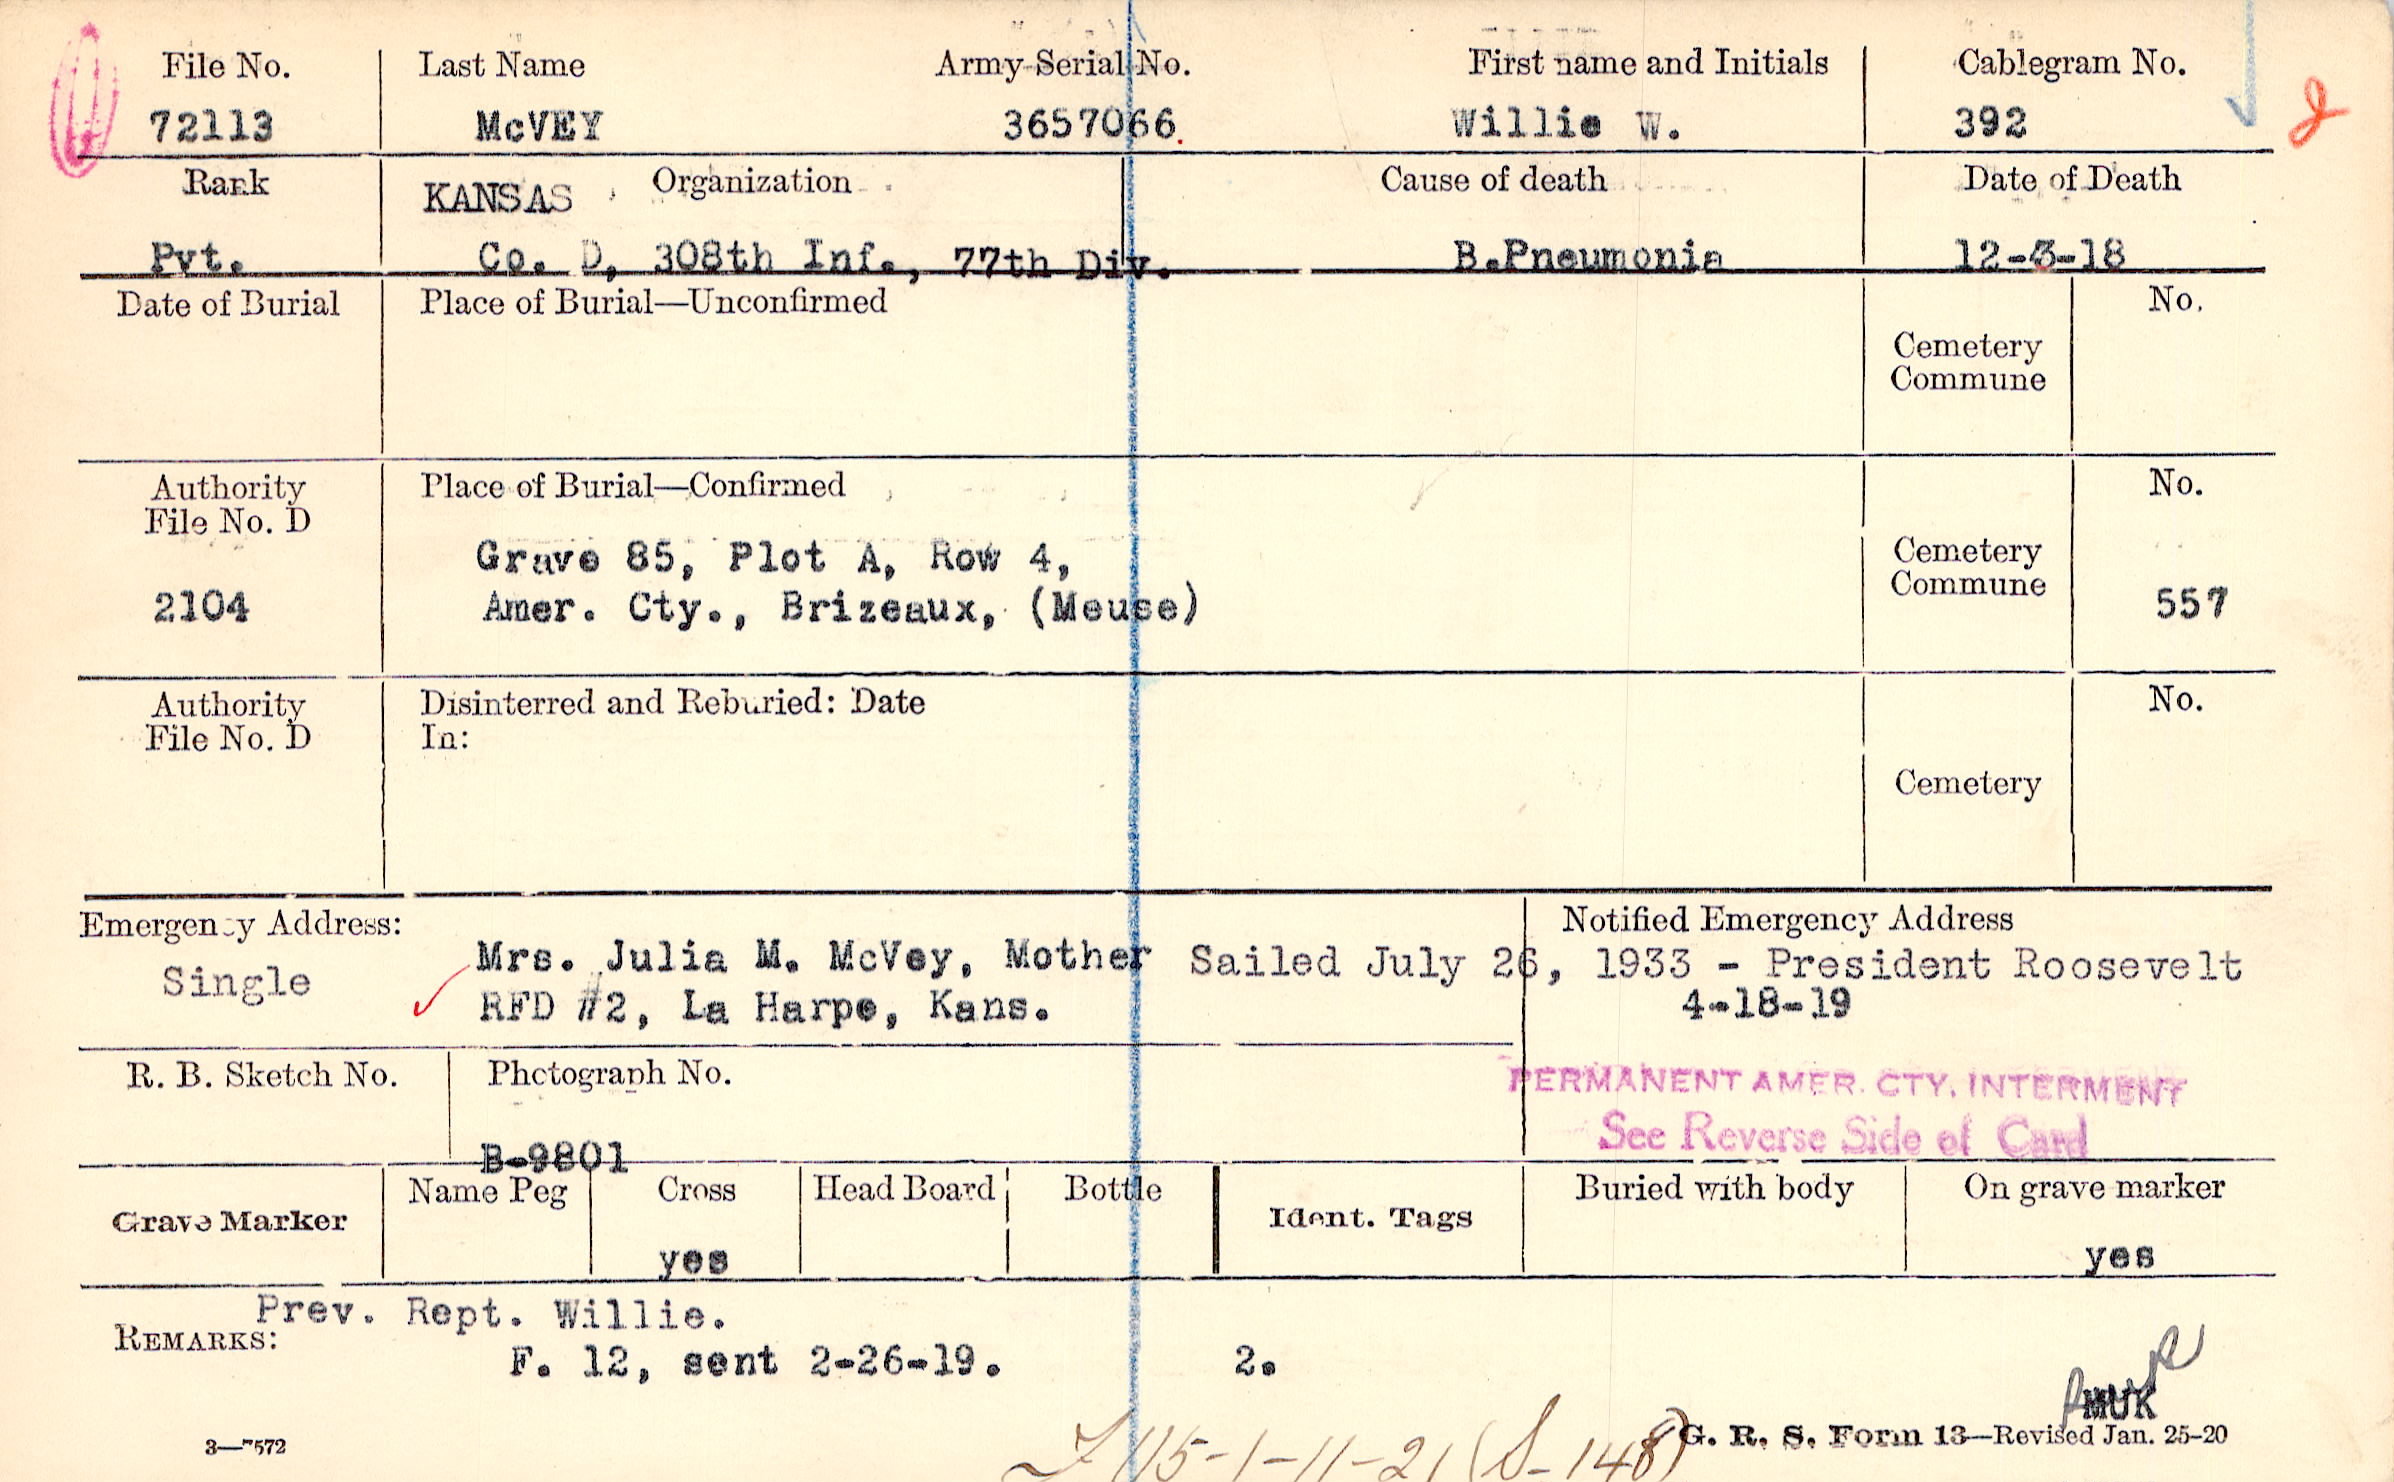 File No. Last Name Army Serial No. First name and Initials Cablegram No.
72113 McVEY 3657066. Willie W. 392
Rank KANSAS Organization Cause of death Date of Death
Pvt. Co. D, 308th Inf., 77th Div. B.Pneumonia 12-3-18
Date of Burial Place of Burial—Unconfirmed No.
Cemetery
Commune
Authority Place of Burial—Confirmed No.
File No. D
Grave 85, Plot A, Row 4, Cemetery
2104 Amer. Cty., Brizeaux, (Meuse) Commune 557
Authority Disinterred and Reburied: Date No.
File No. D In:
Cemetery
Emergency Address: Notified Emergency Address
Single Mrs. Julia M. McVey, Mother Sailed July 26, 1933 - President Roosevelt
RFD #2, La Harpe, Kans. 4-18-19
R. B. Sketch No. Photograph No.
PERMANENT AMER. CTY. INTERMENT
See Reverse Side of Card
B-9801
Grave Marker Name Peg Cross Head Board Bottle Ident. Tags Buried with body On grave marker
yes yes
Prev. Rept. Willie.
REMARKS:
F. 12, sent 2-26-19. 2.
MUK
G. R. S. Form 13—Revised Jan. 25-20
3—7572
115-1-11-21 (S-148)